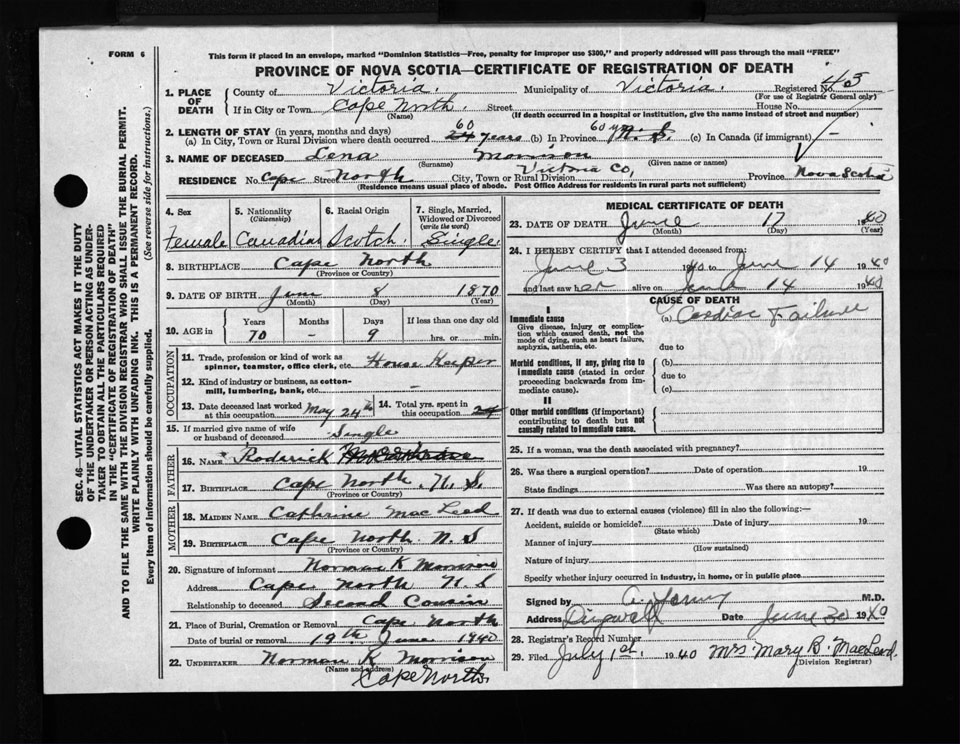 FORM 6
This form if placed in an envelope, marked "Dominion Statistics—Free, penalty for improper use $300," and properly addressed will pass through the mail "FREE"
PROVINCE OF NOVA SCOTIA—CERTIFICATE OF REGISTRATION OF DEATH
1. PLACE OF DEATH
County of Victoria. Municipality of Victoria. Registered No. 43
(For use of Registrar General only)
If in City or Town Cape North. Street House No.
(Name) (If death occurred in a hospital or institution, give the name instead of street and number)
2. LENGTH OF STAY (in years, months and days)
(a) In City, Town or Rural Division where death occurred 60 years (b) In Province 60 N.S. (c) In Canada (if immigrant) –
3. NAME OF DECEASED Lena Morrison
(Surname) (Given name or names)
RESIDENCE No. Cape Street North City, Town or Rural Division Victoria Co, Province Nova Scotia
(Residence means usual place of abode. Post Office Address for residents in rural parts not sufficient)
4. Sex Female
5. Nationality (Citizenship) Canadian
6. Racial Origin Scotch
7. Single, Married, Widowed or Divorced (write the word) Single
8. BIRTHPLACE Cape North
(Province or Country)
9. DATE OF BIRTH June 8 1870
(Month) (Day) (Year)
10. AGE in Years Months Days If less than one day old
70 – 9 hrs. or min.
OCCUPATION
11. Trade, profession or kind of work as spinner, teamster, office clerk, etc. House Keeper
12. Kind of industry or business, as cotton-mill, lumbering, bank, etc. –
13. Date deceased last worked at this occupation May 24th
14. Total yrs. spent in this occupation
15. If married give name of wife or husband of deceased Single
FATHER
16. NAME Roderick
17. BIRTHPLACE Cape North. N.S.
(Province or Country)
MOTHER
18. MAIDEN NAME Cathrine MacLeod
19. BIRTHPLACE Cape North N.S
(Province or Country)
20. Signature of informant Norman K Morrison
Address Cape North N.S
Relationship to deceased Second Cousin
21. Place of Burial, Cremation or Removal Cape North
Date of burial or removal 19th June 1940
22. UNDERTAKER Norman K Morrison
(Name and address)
Cape North
MEDICAL CERTIFICATE OF DEATH
23. DATE OF DEATH June 17 1940
(Month) (Day) (Year)
24. I HEREBY CERTIFY that I attended deceased from:
June 3 1940 to June 14 1940
and last saw her alive on June 14 1940
CAUSE OF DEATH
I
Immediate cause (a) Cardiac Failure
Give disease, injury or complication which caused death, not the mode of dying, such as heart failure, asphyxia, asthenia, etc.
due to
Morbid conditions, if any, giving rise to immediate cause (stated in order proceeding backwards from immediate cause).
(b)
due to
(c)
II
Other morbid conditions (if important) contributing to death but not causally related to immediate cause.
25. If a woman, was the death associated with pregnancy?
26. Was there a surgical operation? Date of operation 19
State findings Was there an autopsy?
27. If death was due to external causes (violence) fill in also the following:—
Accident, suicide or homicide? Date of injury 19
(State which)
Manner of injury
(How sustained)
Nature of injury
Specify whether injury occurred in industry, in home, or in public place.
Signed by M.D.
Address Date June 30 1940
28. Registrar's Record Number
29. Filed July 1st. 1940 Mrs Mary B. MacLeod.
(Division Registrar)
SEC. 46—VITAL STATISTICS ACT MAKES IT THE DUTY
OF THE UNDERTAKER OR PERSON ACTING AS UNDER-
TAKER TO OBTAIN ALL THE PARTICULARS REQUIRED
IN THE "CERTIFICATE OF REGISTRATION OF DEATH"
AND TO FILE THE SAME WITH THE DIVISION REGISTRAR WHO SHALL ISSUE THE BURIAL PERMIT.
WRITE PLAINLY WITH UNFADING INK. THIS IS A PERMANENT RECORD.
Every item of information should be carefully supplied. (See reverse side for instructions.)